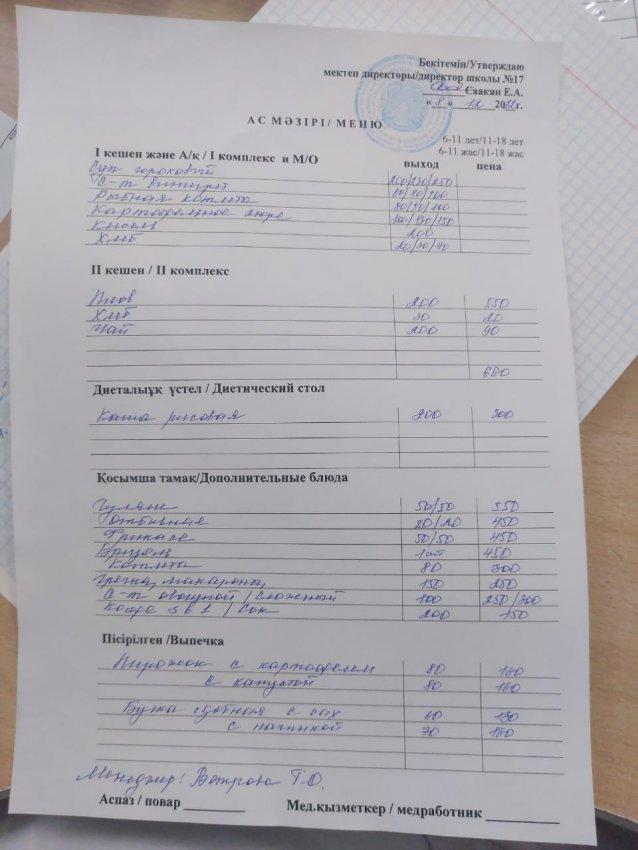 Бекітемін/Утверждаю
мектеп директоры/директор школы №17
Саакян Е.А.
«8» 12 20 г.
АС МӘЗІРІ/ МЕНЮ
6-11 лет/11-18 лет
6-11 жас/11-18 жас
I кешен және А/қ / I комплекс и М/О выход цена
Суп гороховый 200/250/250
С-т винегрет 60/80/100
Рыбная котлета 80/90/100
Картофельное пюре 100/130/150
Кисель 200
Хлеб 20/30/40
II кешен / II комплекс
Плов 200 550
Хлеб 30 20
Чай 200 90
680
Диеталыұқ үстел / Диетический стол
Каша рисовая 200 300
Қосымша тамақ/Дополнительные блюда
Гуляш 50/50 550
Отбивная 80/10 450
Фрикасе 50/50 450
1 шт 450
Котлета 80 300
Гречка, макароны, 150 250
С-т овощной / сложный 100 250/300
Кофе 3 в 1 / Сок 200 150
Пісірілген /Выпечка
Пирожок с картофелем 80 160
с капустой 80 160
Булка сдобная с сах 60 150
с начинкой 70 160
Менеджер: Ветрова Т.О.
Аспаз / повар Мед.қызметкер / медработник